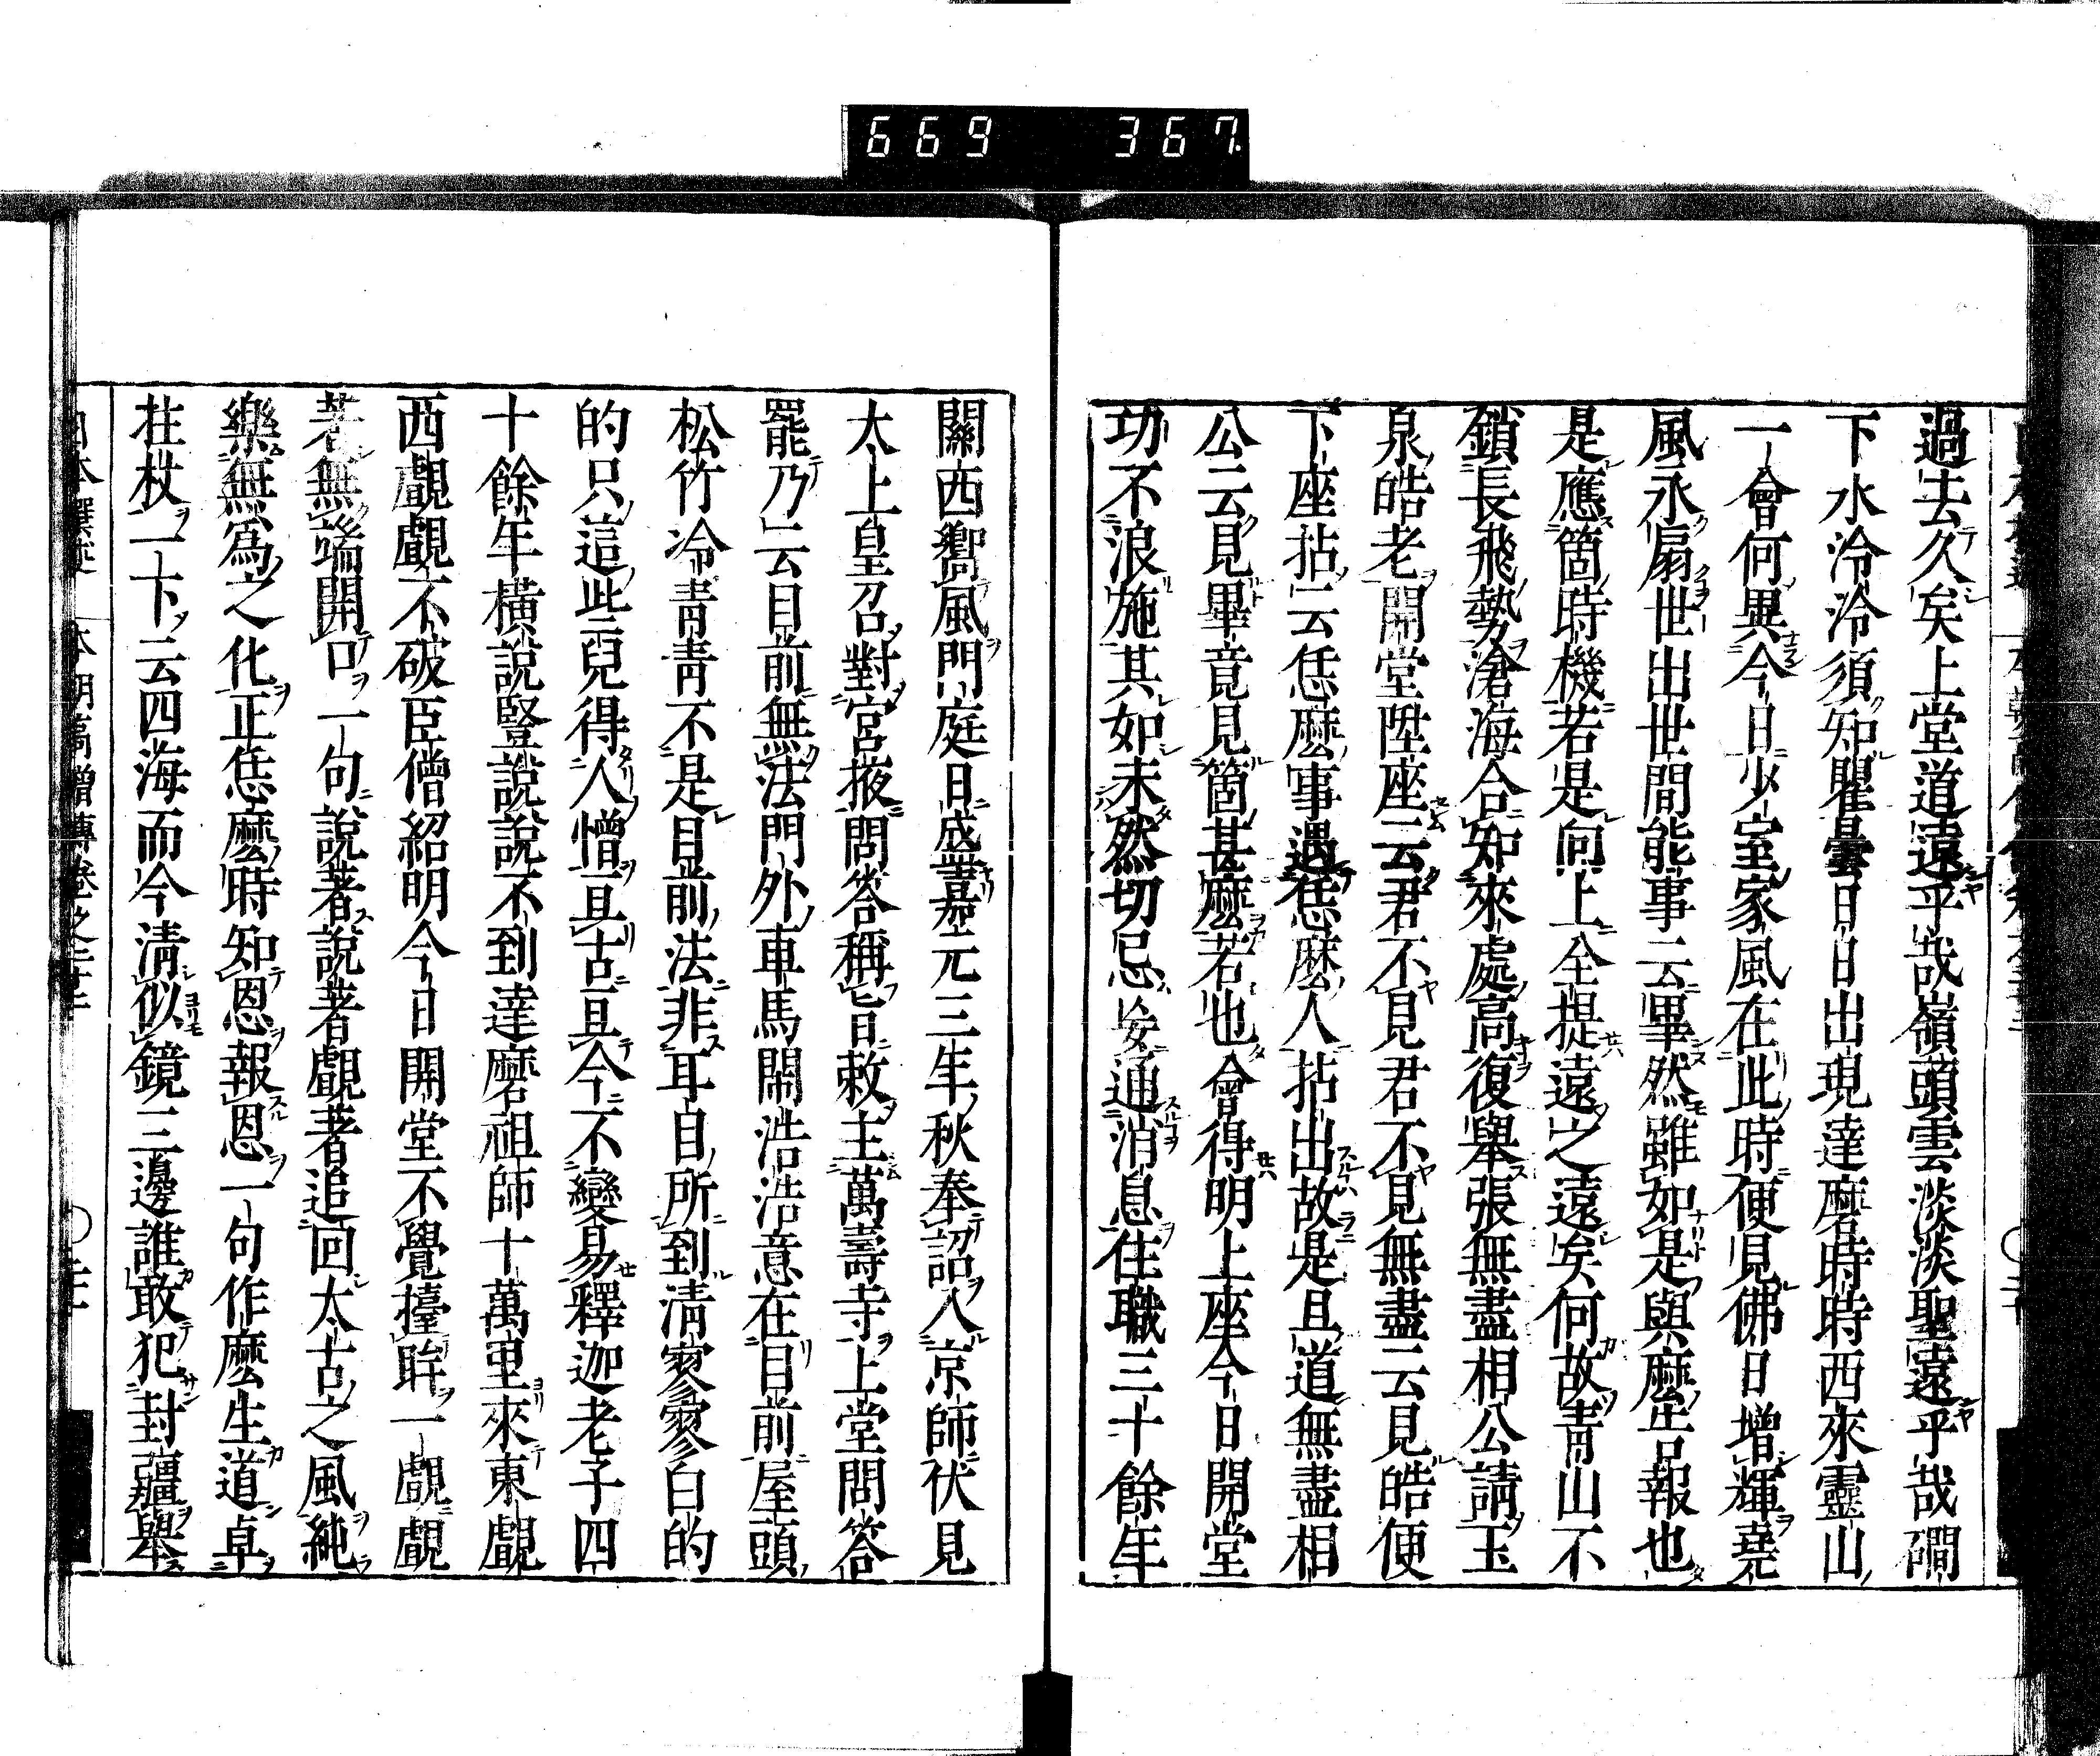 669 367
過去久矣上堂道遠乎哉嶺頭雲淡淡聖遠乎哉磵
下水泠泠須知瞿曇日日出現達磨時時西來靈山
一會何異今日少室家風在此時便見佛日增輝堯
風永扇世出世間能事云畢然雖如是與麼告報也
是應箇時機若是向上全提遠之遠矣何故青山不
鎖長飛勢滄海合知來處高復舉張無盡相公請玉
泉皓老開堂陞座云君不見君不見無盡云見皓便
下座拈云恁麼事遇恁麼人拈出故是且道無盡相
公云見畢竟見箇甚麼若也會得明上座今日開堂
功不浪施其如未然切忌妄通消息住職三十餘年
關西嚮風門庭日盛嘉元三年秋奉詔入京師伏見
太上皇召對宮掖問答稱旨敕主萬壽寺上堂問答
罷乃云目前無法門外車馬鬧浩浩意在目前屋頭
松竹冷青青不是目前法非耳目所到清寥寥白的
的只這些兒得人憎亘古亘今不變易釋迦老子四
十餘年橫說豎說說不到達磨祖師十萬里來東覷
西覷覷不破臣僧紹明今日開堂不覺擡眸一覷覷
著無端開口一句說著說著覷著追回太古之風純
樂無爲之化正恁麼時知恩報恩一句作麼生道卓
拄杖一下云四海而今清似鏡三邊誰敢犯封疆舉
本朝高僧傳卷之二十二